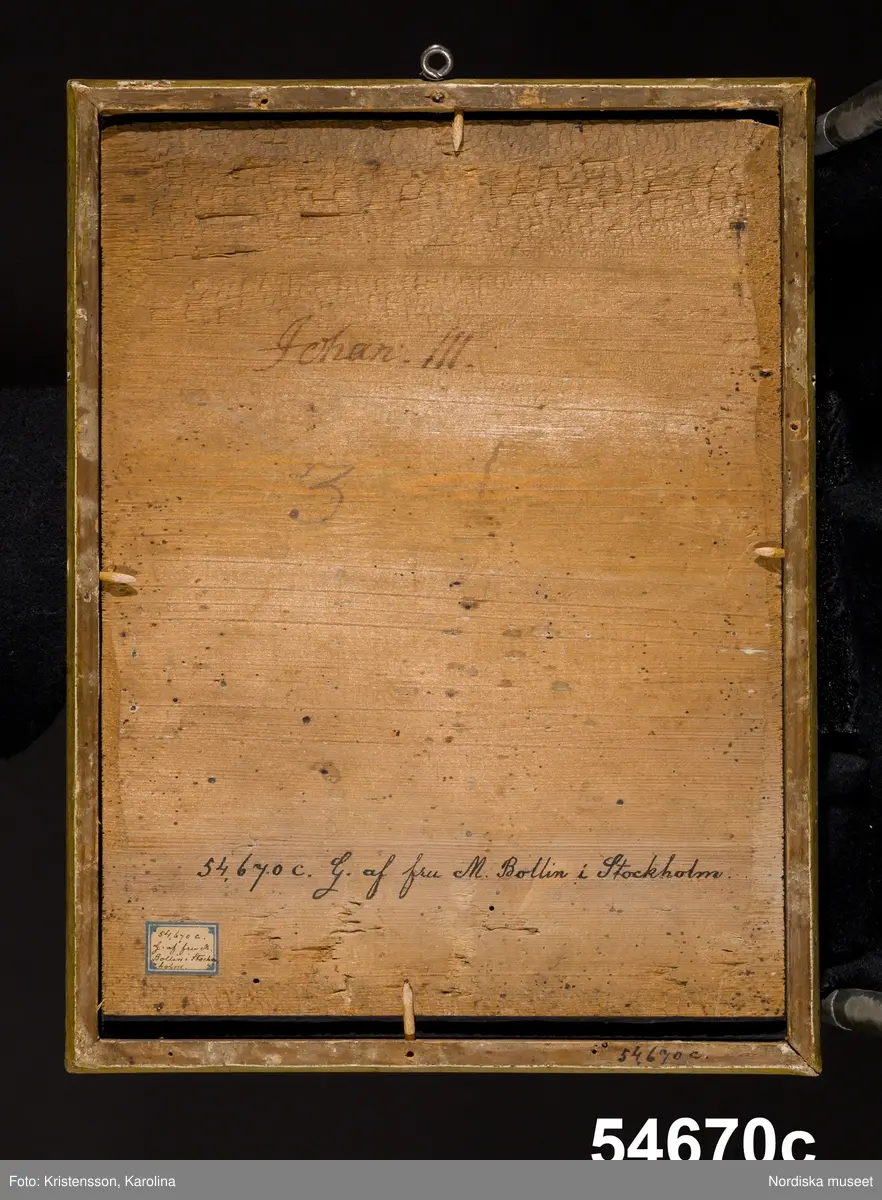 Johan. III.
3
54,670 c. G. af fru M. Bollin i Stockholm.
54,670 c.
G. af fru M.
Bollin i Stock-
holm.
54,670 c.
54670c
Foto: Kristensson, Karolina
Nordiska museet